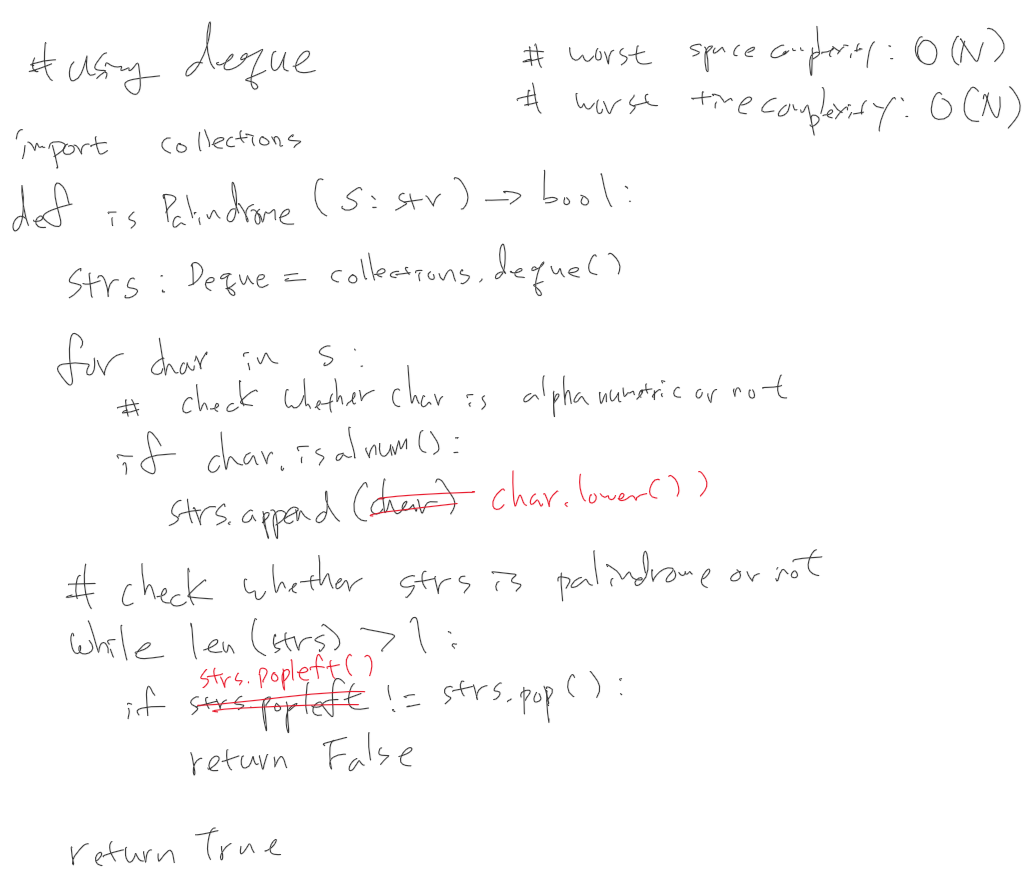 # using deque
# worst space complexity: O(N)
# worst time complexity: O(N)
import collections
def isPalindrome(s: str) -> bool:
strs: Deque = collections.deque()
for char in s:
# check whether char is alphanumetric or not
if char.isalnum():
strs.append(char) char.lower())
# check whether strs is palindrome or not
while len(strs) > 1:
strs.popleft()
if strs.popleft != strs.pop():
return False
return True